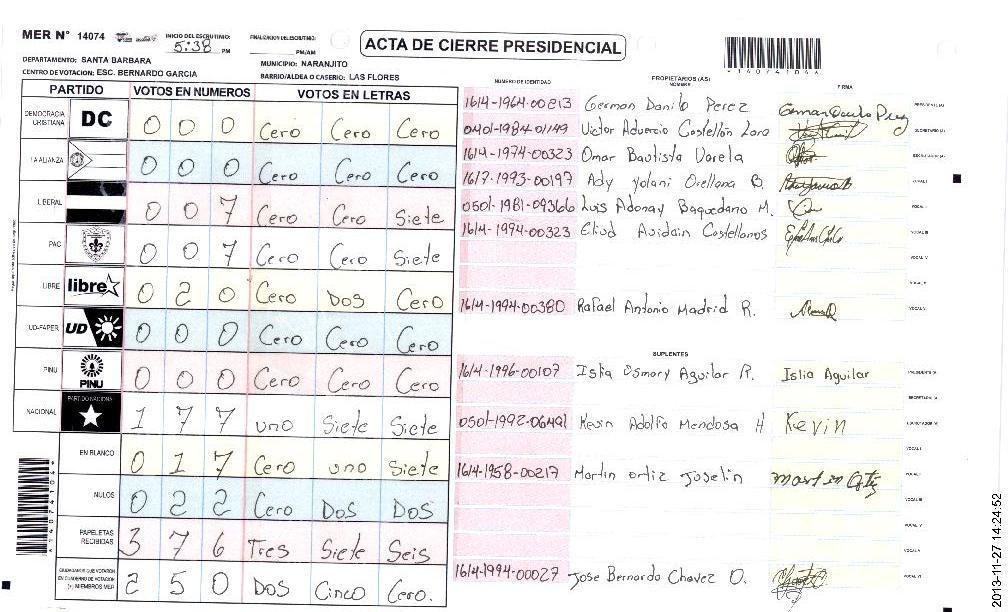 MER N° 14074
INICIO DEL ESCRUTINIO: 5:38 PM
FINALIZACION DEL ESCRUTINIO: PM/AM
ACTA DE CIERRE PRESIDENCIAL
DEPARTAMENTO: SANTA BARBARA
MUNICIPIO: NARANJITO
CENTRO DE VOTACION: ESC. BERNARDO GARCIA
BARRIO/ALDEA O CASERIO: LAS FLORES
PARTIDO VOTOS EN NUMEROS VOTOS EN LETRAS
DEMOCRACIA CRISTIANA DC 0 0 0 Cero Cero Cero
LA ALIANZA 0 0 0 Cero Cero Cero
LIBERAL 0 0 7 Cero Cero Siete
PAC 0 0 7 Cero Cero Siete
LIBRE libre 0 2 0 Cero Dos Cero
UD-FAPER UD 0 0 0 Cero Cero Cero
PINU PINU 0 0 0 Cero Cero Cero
NACIONAL PARTIDO NACIONAL 1 7 7 uno Siete Siete
EN BLANCO 0 1 7 Cero uno Siete
NULOS 0 2 2 Cero Dos Dos
PAPELETAS RECIBIDAS 3 7 6 Tres Siete Seis
CIUDADANOS QUE VOTARON EN CUADERNO DE VOTACION (+) MIEMBROS MER 2 5 0 Dos Cinco Cero.
NUMERO DE IDENTIDAD PROPIETARIOS (AS) NOMBRE FIRMA
1614-1964-00813 German Danilo Perez PRESIDENTE (A)
0401-1984-01149 Victor Advercio Castellón Lara SECRETARIO (A)
1614-1974-00323 Omar Bautista Varela
1617-1993-00197 Ady Yolani Orellana B. VOCAL I
0501-1981-09366 Luis Adonay Baquedano M. VOCAL II
1614-1994-00323 Eliud Avidain Castellanos VOCAL III
VOCAL IV
VOCAL V
1614-1994-00380 Rafael Antonio Madrid R. VOCAL VI
SUPLENTES
1614-1996-00107 Islia Osmary Aguilar R. Islia Aguilar PRESIDENTE (A)
SECRETARIO (A)
0501-1992-06491 Kevin Adolfo Mendosa H Kevin
VOCAL I
1614-1958-00217 Martin Ortiz Joselin VOCAL II
VOCAL III
VOCAL V
1614-1994-00027 Jose Bernardo Chavez O. VOCAL VI
2013-11-27 14:24:52